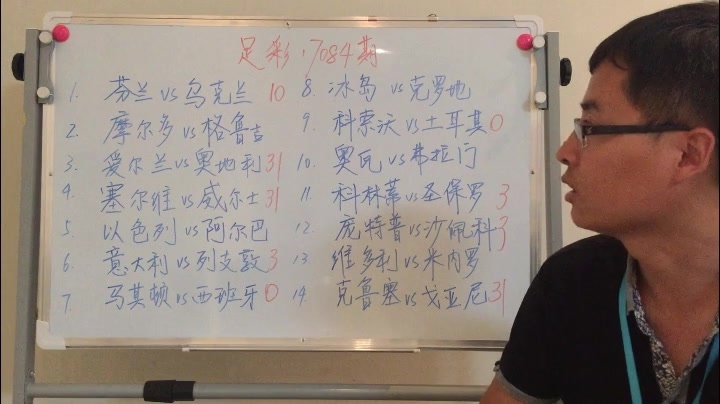 足彩:7084期
1. 芬兰 vs 乌克兰 10
2. 摩尔多 vs 格鲁吉
3. 爱尔兰 vs 奥地利 31
4. 塞尔维 vs 威尔士 31
5. 以色列 vs 阿尔巴
6. 意大利 vs 列支敦 3
7. 马其顿 vs 西班牙 0
8. 冰岛 vs 克罗地
9. 科索沃 vs 土耳其 0
10. 奥瓦 vs 弗拉门
11. 科林蒂 vs 圣保罗 3
12. 庞特普 vs 沙佩科 3
13 维多利 vs 米内罗
14. 克鲁塞 vs 戈亚尼 31